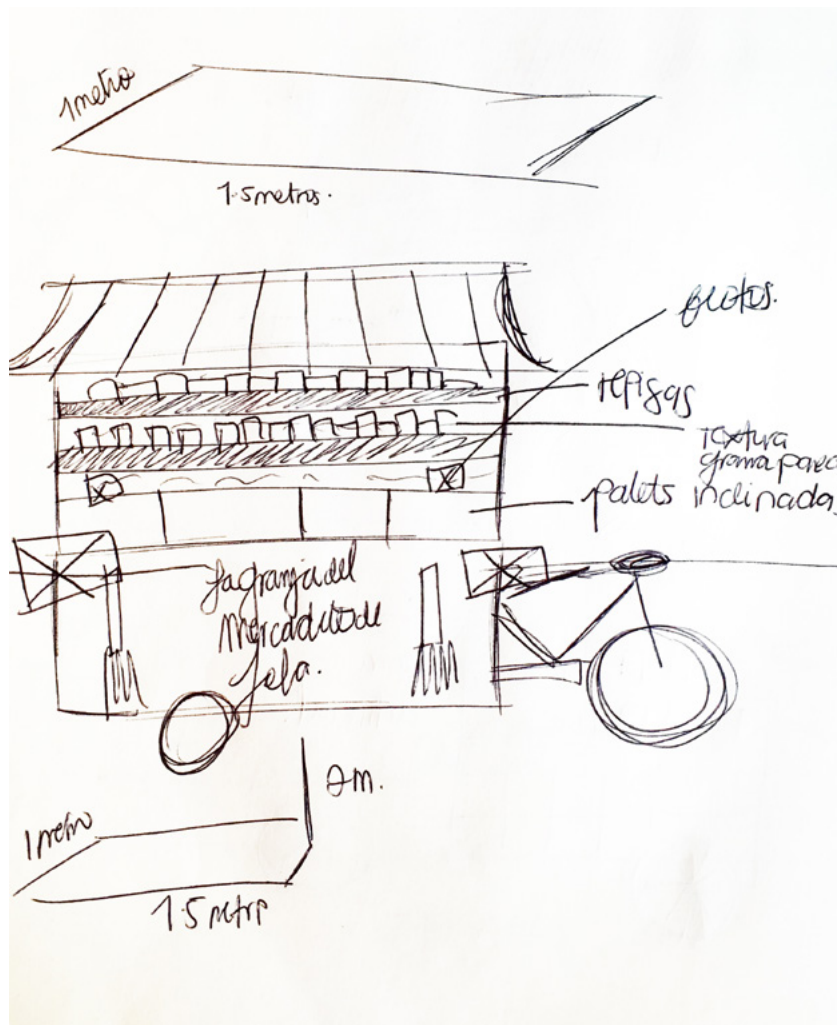 1 metro
1.5 metros.
repisas
textura
grama para
palets inclinadas
la granja del
Mercadito de
2m.
1 metro